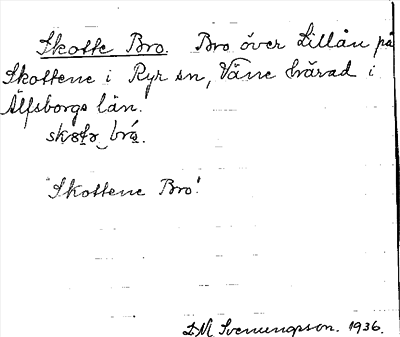 Skotte Bro. Bro över Lillån på
Skottene i Ryr sn, Väne härad i
Älfsborgs län.
bro̱.
"Skottene Bro!
D M Svenungson. 1936.